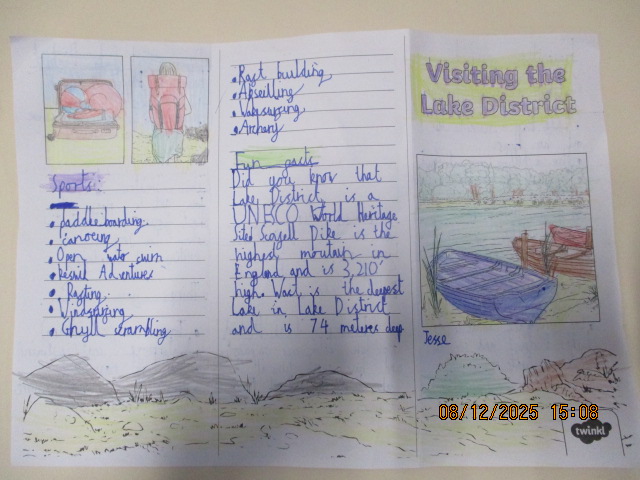 Sports:
paddle boarding
canoeing
Open water swim
Adventures
Rafting
Windsurfing
Ghyll scrambling
Raft building
Abseilling
Wakesurfing
Archery
Fun facts
Did you know that
Lake District is a
UNECO World Heritage
Site, Scafell Pike is the
highest mountain in
England and is 3,210'
high. Wast is the deepest
Lake in Lake District
and is 74 meteres deep
Visiting the
Lake District
Jesse
08/12/2025 15:08
twinkl